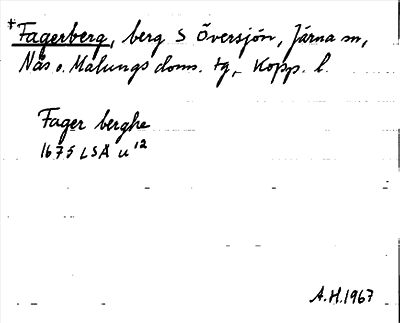 +Fagerberg, berg S Översjön, Järna sn,
Nås o. Malungs doms. tg, Kopp. l.
Fager berghe
1675 LSÄ u 12
A.H. 1967